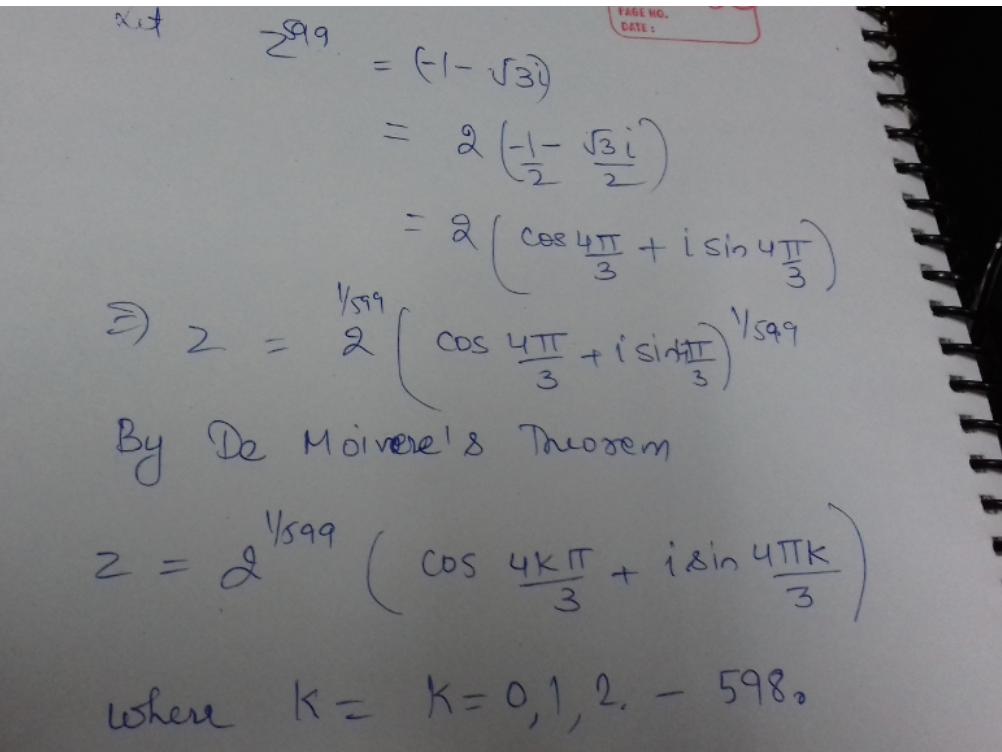 Let z^599 = (-1-√3i)
PAGE NO.
DATE :
= 2 (-1/2 - √3i/2)
= 2 ( cos 4π/3 + i sin 4π/3 )
⇒ z = 2^1/599 ( cos 4π/3 + i sin 4π/3 )^1/599
By De Moivere's Theorem
z = 2^1/599 ( cos 4kπ/3 + i sin 4πk/3 )
where K = K = 0, 1, 2. - 598.